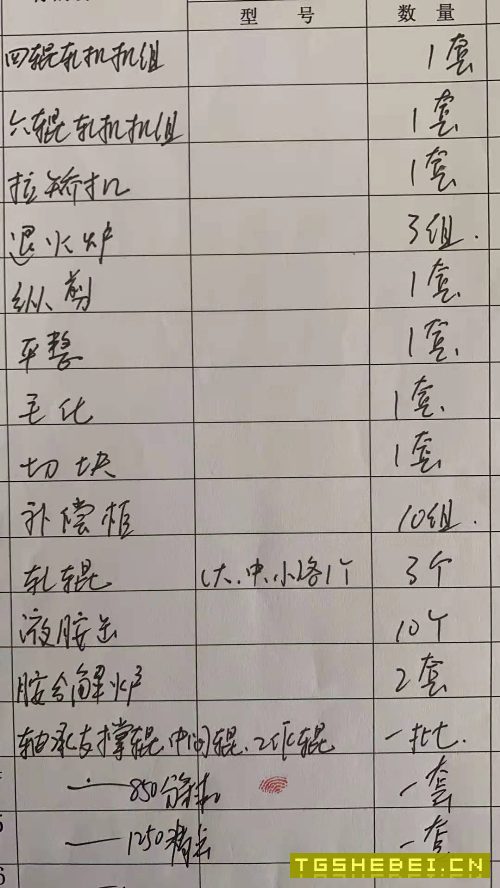 型 号 数 量
四辊轧机机组 1套
六辊轧机机组 1套
拉矫机 1套
退火炉 3组.
纵剪 1套
平整 1套
毛化 1套
切块 1套
补偿柜 10组.
轧辊 (大、中、小各1个 3个
液胺缶 10个
胺分解炉 2套
轴承支撑辊中间辊、工作辊 一批.
850分 一套
1250 一套
TGSHEBEI.CN